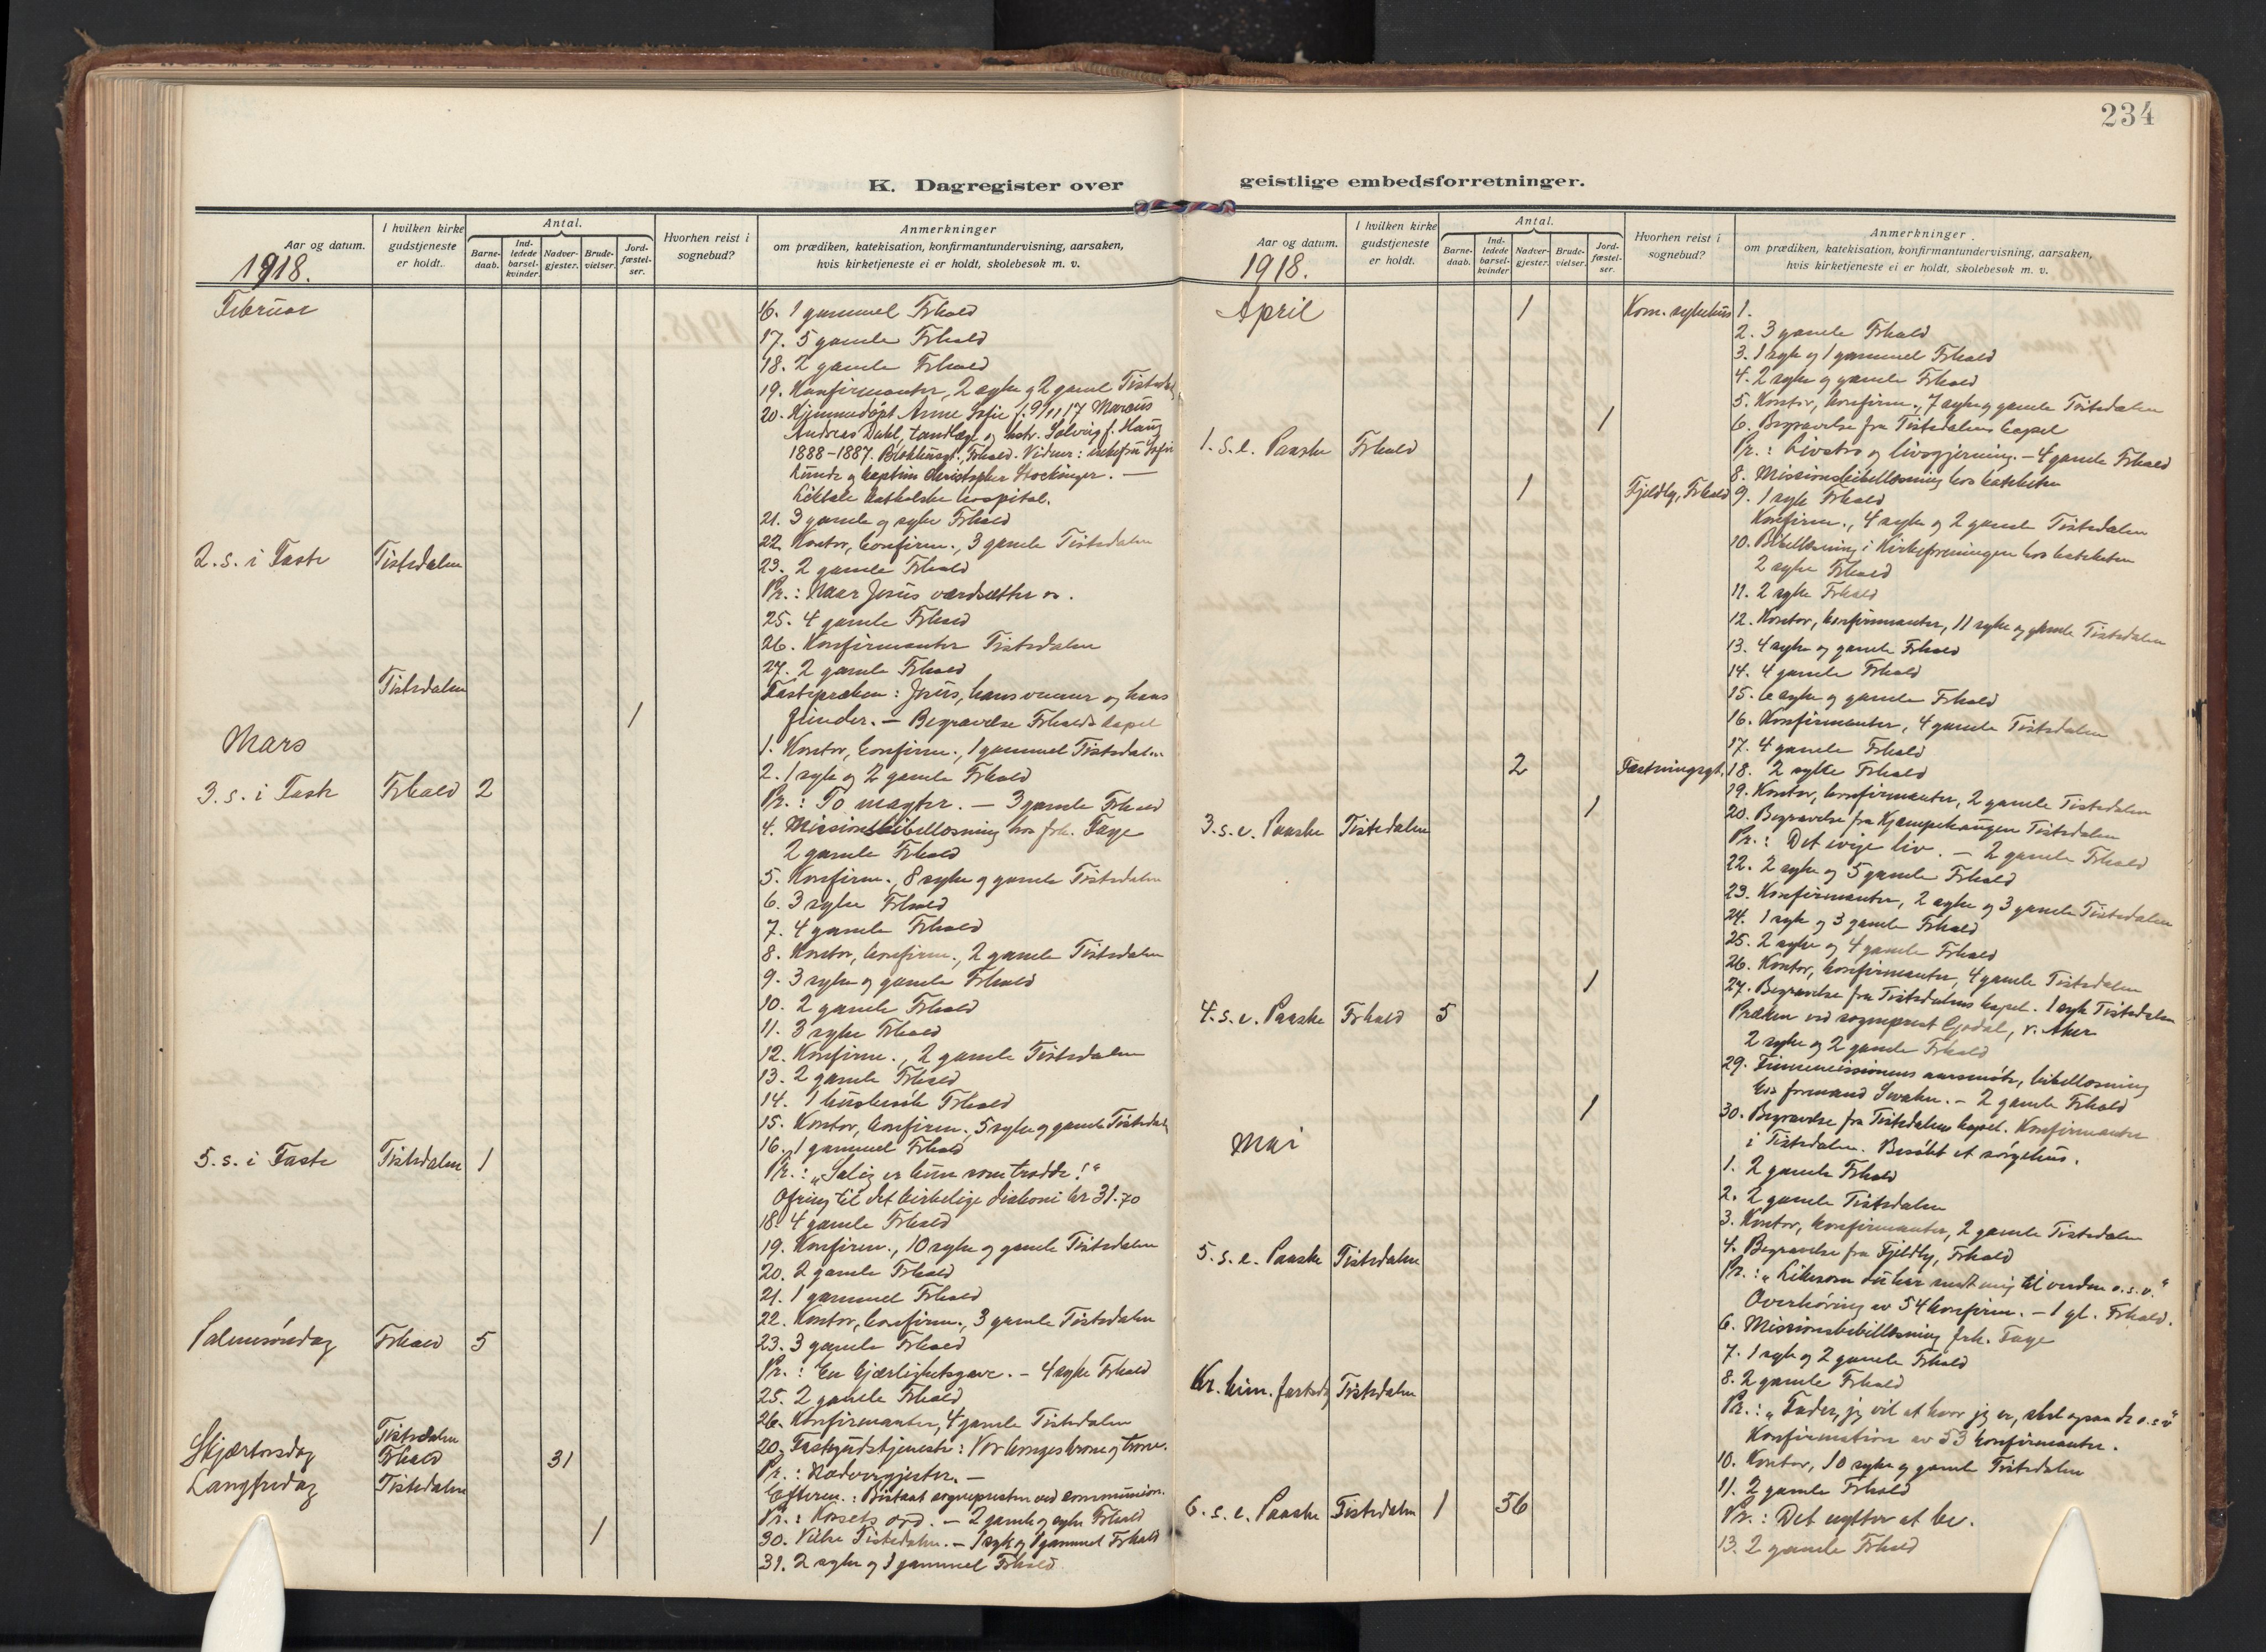 234
K. Dagregister over
Aar og datum.
I hvilken kirke gudstjeneste er holdt.
Antal.
Barne-daab.
Ind-ledede barsel-kvinder
Nadver-gjester.
Brude-vielser.
Jord-fæstel-ser.
Hvorhen reist i sognebud?
Anmerkninger
om prædiken, katekisation, konfirmantundervisning, aarsaken,
hvis kirketjeneste ei er holdt, skolebesøk m. v.
1918.
Februar
16. 1 gammel Frhald
17. 5 gamle Frhald
18. 2 gamle Frhald
19. Konfirmanter, 2 syke og 2 gaml Tistedal
20. Hjemmedøpt Anne Sofie f. 9/11 17 Marcus
Andreas Dahl, tandlæge og hstr. Solveig f. Haug
1888-1887. Blokhusgt., Frhald. Vidner: enkefru Sofie
Lunde og kaptein Christopher Stockinger. —
katholske hospital.
21. 3 gamle og syke Frhald
22. Kontor, konfirm., 3 gamle Tistedalen
2. s. i Faste Tistedalen
23. 2 gamle Frhald
Pr.: Naar Jesus værdsætter os.
25. 4 gamle Frhald
26. Konfirmanter Tistedalen
27. 2 gamle Frhald
Tistedalen
Fastepræken: Jesus, hans venner og hans
1
fiender. — Begravelse Frhalds kapel
Mars
1. Kontor, konfirm., 1 gammel Tistedalen
2. 1 syk og 2 gamle Frhald
3. s. i Faste Frhald 2
Pr.: To magter. — 3 gamle Frhald
4. Missionsbibellæsning hos frk. Faye
2 gamle Frhald
5. Konfirm., 8 syke og gamle Tistedalen
6. 3 syke Frhald
7. 4 gamle Frhald
8. Kontor, konfirm., 2 gamle Tistedalen
9. 3 syke og gamle Frhald
10. 2 gamle Frhald
11. 3 syke Frhald
12. Konfirm., 2 gamle Tistedalen
13. 2 gamle Frhald
14. 1 husbesøk Frhald
15. Kontor, konfirm., 5 syke og gamle Tistedal
16. 1 gammel Frhald
5. s. i Faste Tistedalen 1
Pr.: „Salig er hun som trodde!"
Ofring til det kirkelige diakoni kr 31.70
18. 4 gamle Frhald
19. Konfirm., 10 syke og gamle Tistedalen
20. 2 gamle Frhald
21. 1 gammel Frhald
22. Kontor, konfirm., 3 gamle Tistedalen
23. 3 gamle Frhald
Palmesøndag Frhald 5
Pr.: En kjærlighetsgave. — 4 syke Frhald
25. 2 gamle Frhald
26. Konfirmanter, 4 gamle Tistedalen
Tistedalen
Fastegudstjeneste: Vor konges krone og trone.
Skjærtorsdag Frhald 31
Pr.: Nadvergjester. —
Langfredag Tistedalen
Efterm.: Bistaat sognepresten ved communion.
Pr.: Korsets ord. — 2 gamle og syke Frhald
1
30. Vielse Tistedalen. — 1 syk og 1 gammel Frhald
31. 2 syke og 1 gammel Frhald
geistlige embedsforretninger.
Aar og datum.
I hvilken kirke gudstjeneste er holdt.
Antal.
Barne-daab.
Ind-ledede barsel-kvinder
Nadver-gjester.
Brude-vielser.
Jord-fæstel-ser.
Hvorhen reist i sognebud?
Anmerkninger
om prædiken, katekisation, konfirmantundervisning, aarsaken,
hvis kirketjeneste ei er holdt, skolebesøk m. v.
1918.
April 1 Kom. sykehus 1.
2. 3 gamle Frhald
3. 1 syk og 1 gammel Frhald
4. 2 syke og gamle Frhald
5. Kontor, konfirm., 7 syke og gamle Tistedalen
1
6. Begravelse fra Tistedalens kapel
1. s. e. Paaske Frhald
Pr.: Livstro og livsgjerning. — 4 gamle Frhald
8. Missionsbibellæsning hos kateketen
1 Fjeldby, Frhald
9. 1 syk Frhald
Konfirm., 4 syke og 2 gamle Tistedalen
10. Bibellæsning i Kirkeforeningen hos kateketen
2 syke Frhald
11. 2 syke Frhald
12. Kontor, konfirmanter, 11 syke og gamle Tistedalen
13. 4 syke og gamle Frhald
14. 4 gamle Frhald
15. 6 syke og gamle Frhald
16. Konfirmanter, 4 gamle Tistedalen
17. 4 gamle Frhald
2 Fæstningsgt.
18. 2 syke Frhald
19. Kontor, konfirmanter, 2 gamle Tistedalen
1
20. Begravelse fra Kjæmpehaugen Tistedalen
3. s. e. Paaske Tistedalen
Pr.: Det evige liv. — 2 gamle Frhald
22. 2 syke og 5 gamle Frhald
23. Konfirmanter, 2 syke og 3 gamle Tistedalen
24. 1 syk og 3 gamle Frhald
25. 2 syke og 4 gamle Frhald
26. Kontor, konfirmanter, 4 gamle Tistedalen
1
27. Begravelse fra Tistedalens kapel. 1 syk Tistedalen
4. s. e. Paaske Frhald 5
Præken ved sogneprest Gjødal, v. Aker
2 syke og 2 gamle Frhald
29. Finnemissionens aarsmøte, bibellæsning
hos formand Swahn. — 2 gamle Frhald
1
30. Begravelse fra Tistedalens kapel. Konfirmanter
i Tistedalen. Besøkt et sørgehus.
Mai
1. 2 gamle Frhald
2. 2 gamle Tistedalen
3. Kontor, konfirmanter, 2 gamle Tistedalen
4. Begravelse fra Fjeldby, Frhald
5. s. e. Paaske Tistedalen
Pr.: „Likesom du har sendt mig til verden o.s.v."
Overhøring av 54 konfirm. — 1 gl. Frhald.
6. Missionsbibellæsning frk. Faye
7. 1 syk og 2 gamle Frhald
8. 2 gamle Frhald
Kr. him. fartsdg Tistedalen
Pr.: „Fader, jeg vil at hvor jeg er, skal ogsaa de o.s.v"
Konfirmation av 53 konfirmanter.
10. Kontor, 10 syke og gamle Tistedalen
11. 2 gamle Frhald
6. s. e. Paaske Tistedalen 1 56
Pr.: Det nytter at be.
13. 2 gamle Frhald